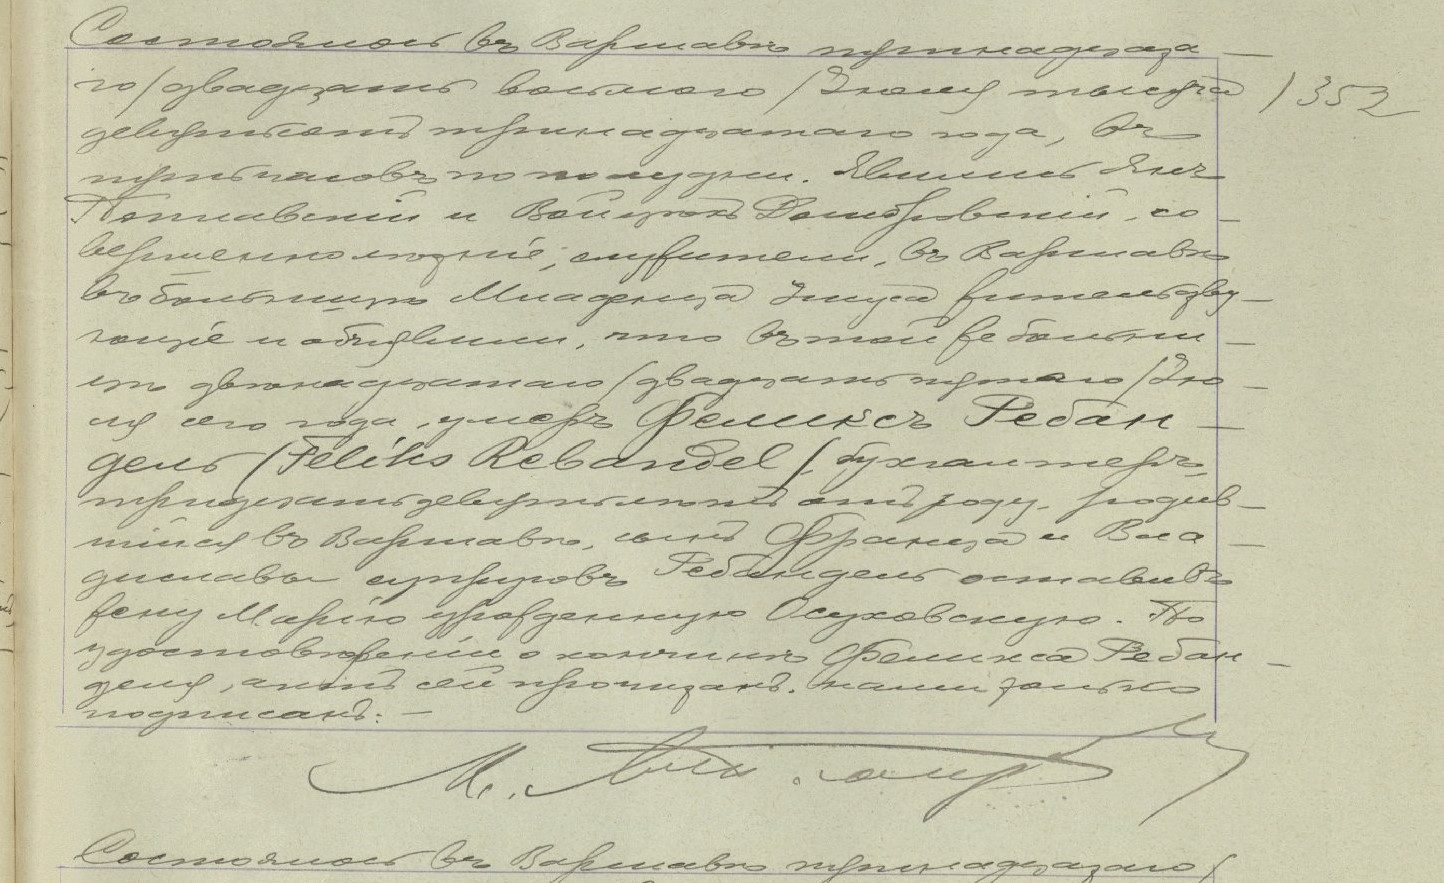 Состоялось въ Варшавѣ тринадцата
го/двадцать восьмого/Іюля тысяча
1352
девятьсотъ тринадцатаго года, въ
пять часовъ по полудни. Явились Янъ
Поплавскій и Войцѣхъ Домбровскій, со
вершеннолѣтніе, служители, въ Варшавѣ
въ больницѣ Младенца Іисуса жительству
ющіе и объявили, что въ той же больни
цѣ двѣнадцатаго/двадцать пятаго/Ію
ля сего года, умеръ Феликсъ Ребан
дель /Feliks Rebandel/, бухгалтеръ,
тридцать девять лѣтъ отъ роду, родив
шійся въ Варшавѣ, сынъ Франца и Вла
диславы супруговъ Ребандель оставивъ
жену Марію урожденную Осуховскую. По
удостовѣреніи о кончинѣ Феликса Ребан
деля, актъ сей прочитанъ, нами только
подписанъ:
Состоялось въ Варшавѣ тринадцатаго/